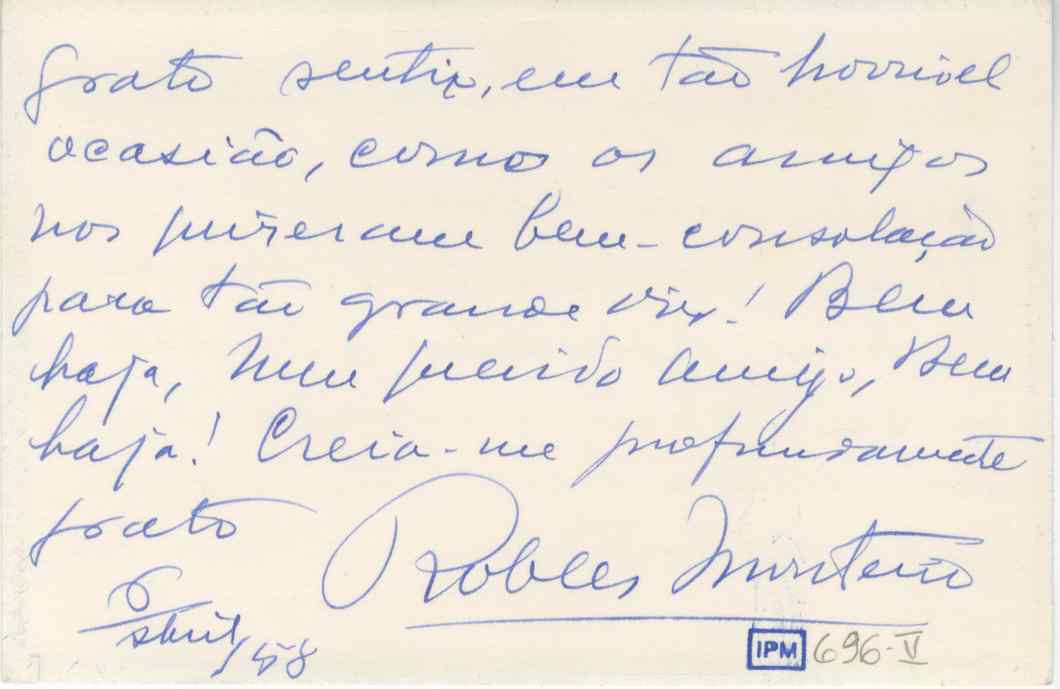 grato sentir, em tão horrivel
ocasião, como os amigos
nos quizeram bem - consolação
para tão grande dôr! Bem
haja, meu querido amigo, Bem
haja! Creia-me profundamente
grato
Robles Monteiro
6/abril/58
IPM 696-V